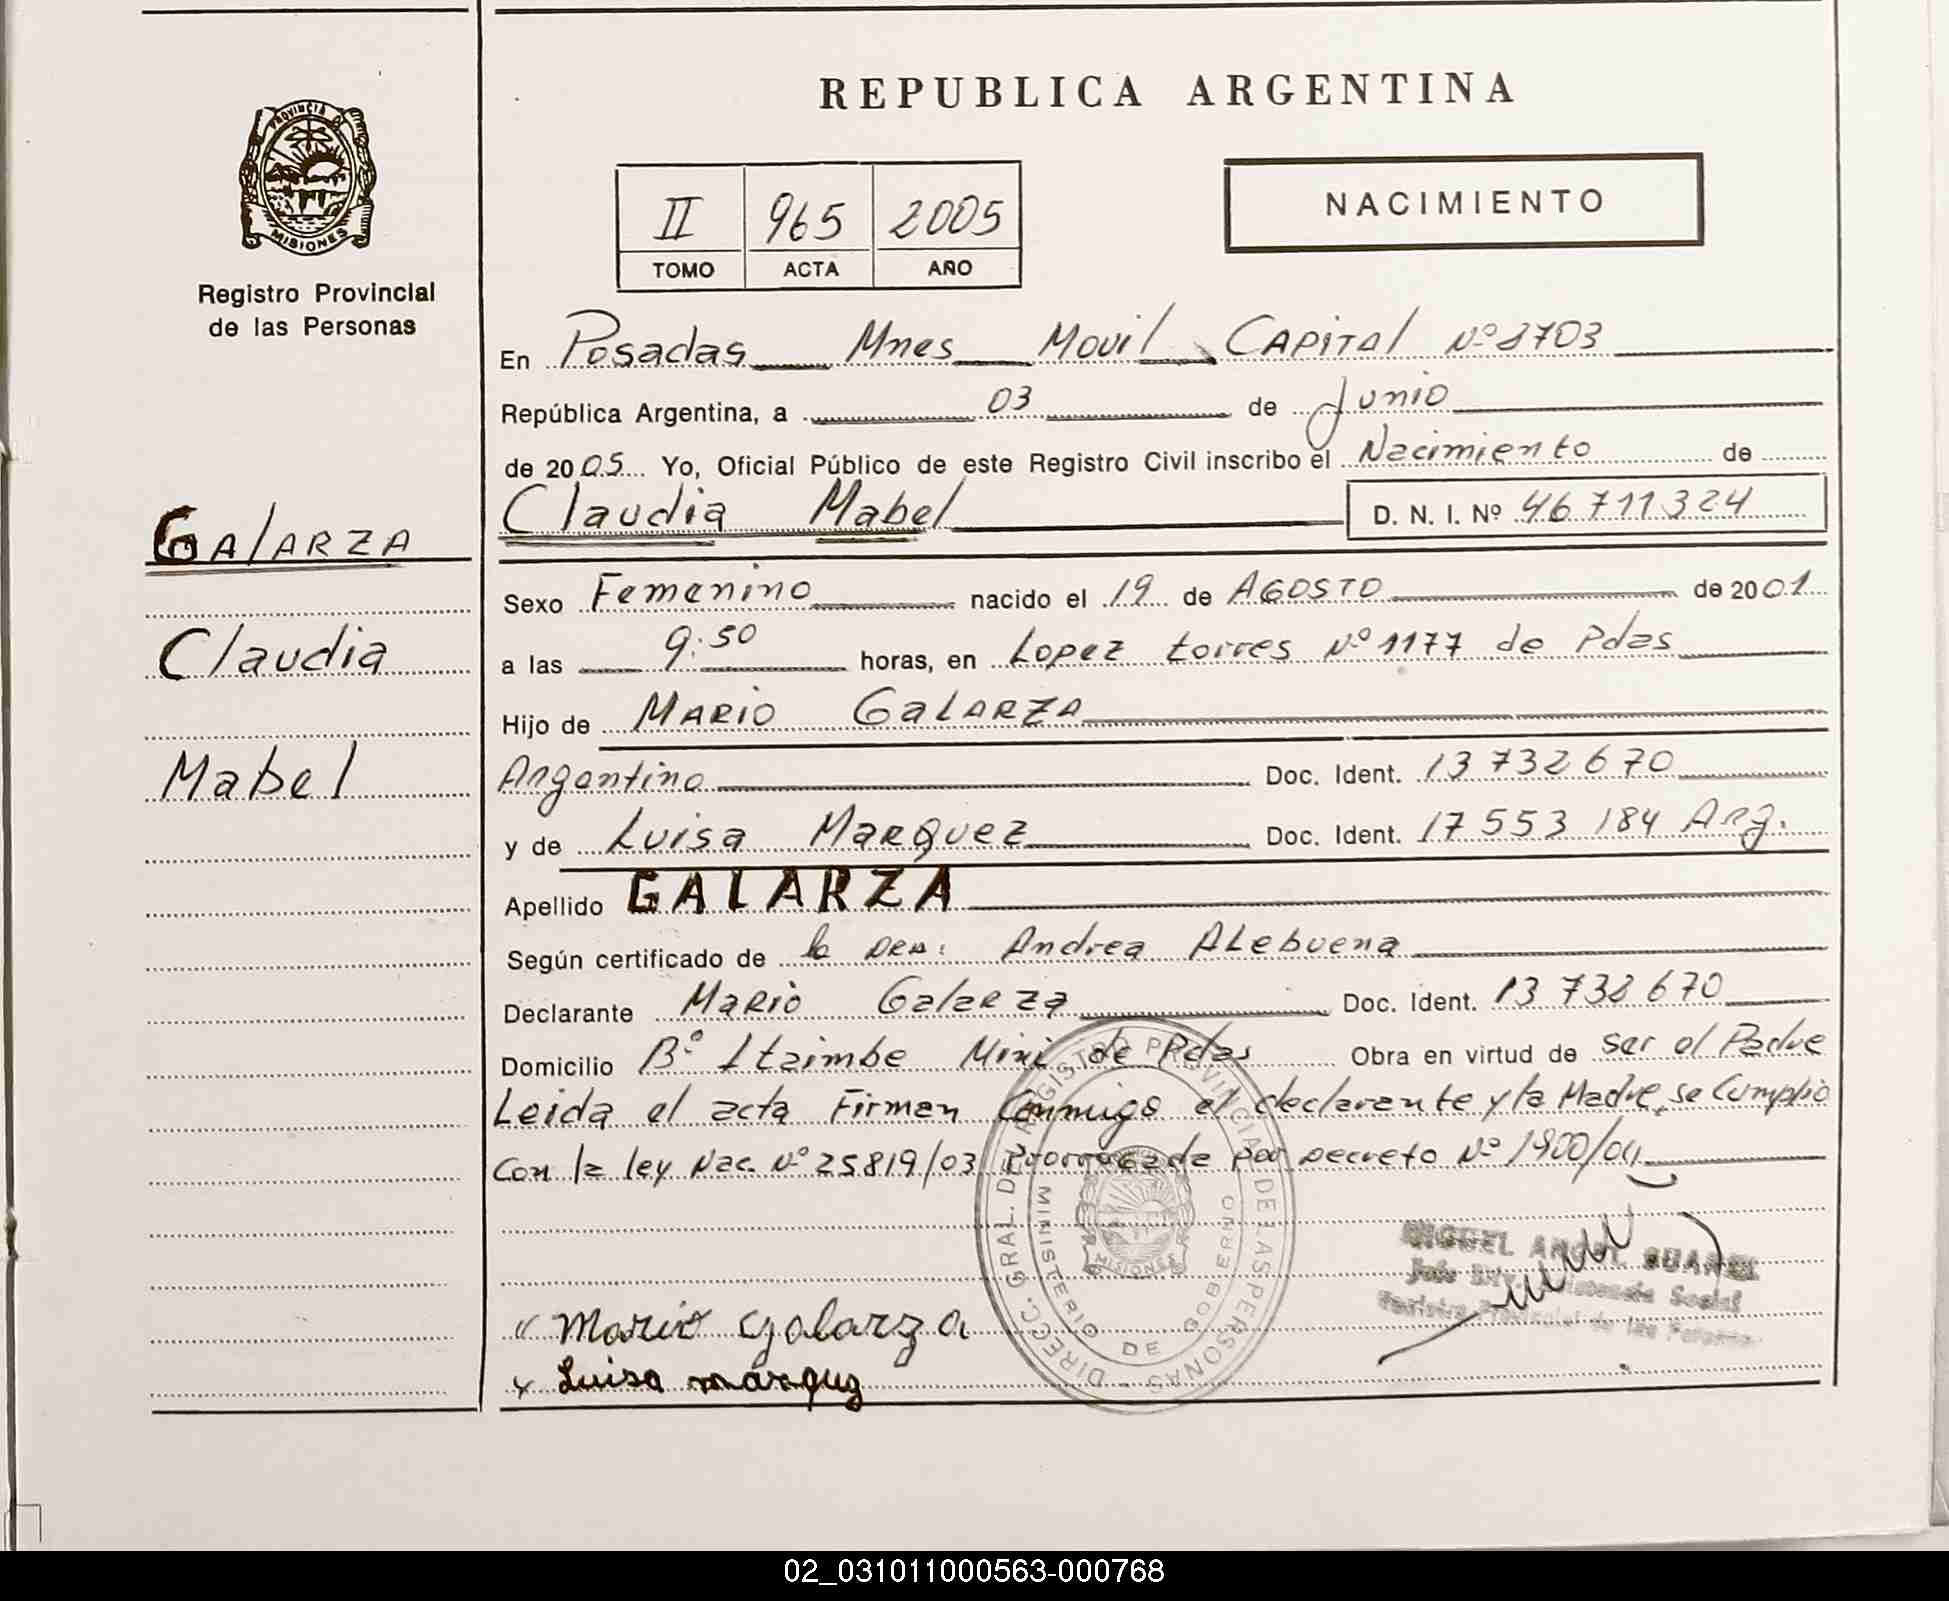 REPUBLICA ARGENTINA
PROVINCIA DE
MISIONES
Registro Provincial
de las Personas
II 965 2005
TOMO ACTA AÑO
NACIMIENTO
En Posadas Mnes Movil Capital Nº 2703
República Argentina, a 03 de Junio
de 2005 Yo, Oficial Público de este Registro Civil inscribo el Nacimiento de
Claudia Mabel D. N. I. Nº 46711324
GALARZA
Claudia
Mabel
Sexo Femenino nacido el 19 de AGOSTO de 2001
a las 9:50 horas, en Lopez torres Nº 1177 de Pdas
Hijo de MARIO GALARZA
Argentino Doc. Ident. 13732670
y de Luisa Marquez Doc. Ident. 17553184 Arg.
Apellido GALARZA
Según certificado de la DRA: Andrea ALebuena
Declarante Mario Galarza Doc. Ident. 13732670
Domicilio Bº Itaimbe Mini de Pdas Obra en virtud de ser el Padre
Leida el acta Firman Conmigo el declarante y la Madre, se Cumplio
Con la ley Nac. Nº 25819/03 Prorrogada por Decreto Nº 1900/04
DIRECC. GRAL. DE REGISTRO PROVINCIAL DE LAS PERSONAS
MINISTERIO DE GOBIERNO
MISIONES
MIGUEL ANGEL
Social
Registro Provincial de las Personas
Mario Galarza
x Luisa marquez
02_031011000563-000768